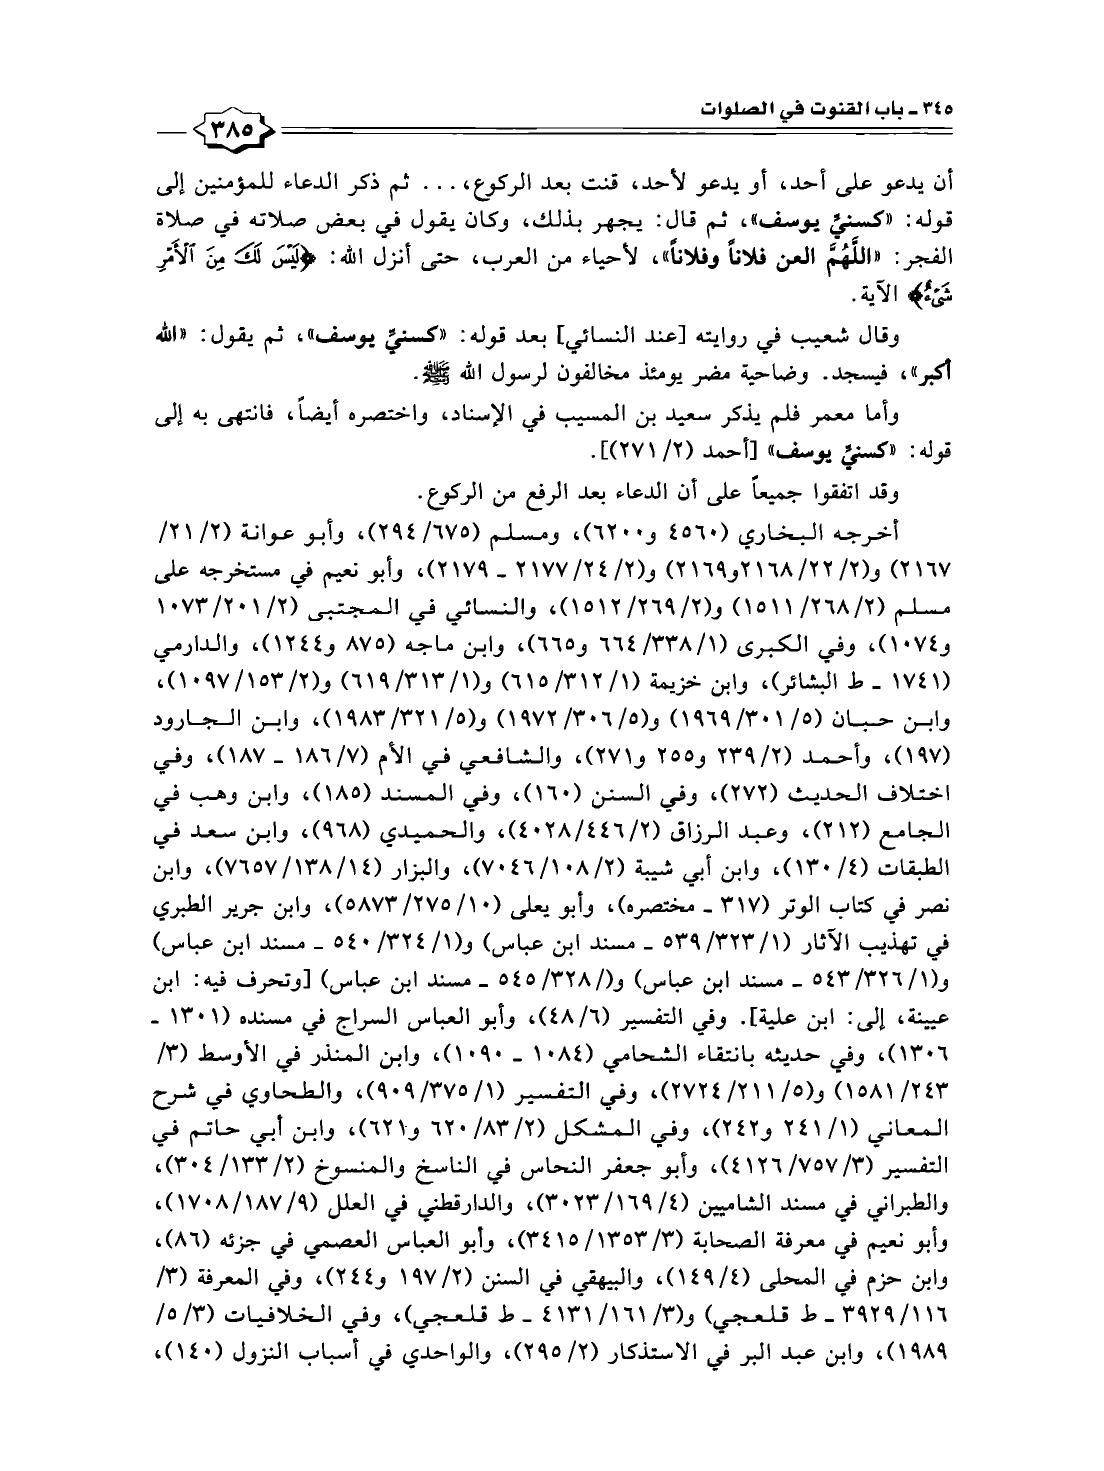 ٣٤٥ ـ باب القنوت في الصلوات
٣٨٥
أن يدعو على أحد، أو يدعو لأحد، قنت بعد الركوع،... ثم ذكر الدعاء للمؤمنين إلى
قوله: «كسنيِّ يوسف»، ثم قال: يجهر بذلك، وكان يقول في بعض صلاته في صلاة
الفجر: «اللَّهُمَّ العن فلاناً وفلاناً»، لأحياء من العرب، حتى أنزل الله: ﴿لَيْسَ لَكَ مِنَ ٱلْأَمْرِ
شَىْءٌ﴾ الآية.
وقال شعيب في روايته [عند النسائي] بعد قوله: «كسنيِّ يوسف»، ثم يقول: «الله
أكبر»، فيسجد. وضاحية مضر يومئذ مخالفون لرسول الله ﷺ.
وأما معمر فلم يذكر سعيد بن المسيب في الإسناد، واختصره أيضاً، فانتهى به إلى
قوله: «كسنيِّ يوسف» [أحمد (٢/ ٢٧١)].
وقد اتفقوا جميعاً على أن الدعاء بعد الرفع من الركوع.
أخرجه البخاري (٤٥٦٠ و٦٢٠٠)، ومسلم (٢٩٤/٦٧٥)، وأبو عوانة (٢/ ٢١/
٢١٦٧) و(٢/ ٢٢/ ٢١٦٨و٢١٦٩) و(٢/ ٢٤/ ٢١٧٧ ـ ٢١٧٩)، وأبو نعيم في مستخرجه على
مسلم (٢/ ٢٦٨/ ١٥١١) و(٢/ ٢٦٩/ ١٥١٢)، والنسائي في المجتبى (٢/ ٢٠١/ ١٠٧٣
و١٠٧٤)، وفي الكبرى (١/ ٣٣٨/ ٦٦٤ و٦٦٥)، وابن ماجه (٨٧٥ و١٢٤٤)، والدارمي
(١٧٤١ ـ ط البشائر)، وابن خزيمة (١/ ٣١٢/ ٦١٥) و(١/ ٣١٣/ ٦١٩) و(٢/ ١٥٣/ ١٠٩٧)،
وابن حبان (٥/ ٣٠١/ ١٩٦٩) و(٥/ ٣٠٦/ ١٩٧٢) و(٥/ ٣٢١/ ١٩٨٣)، وابن الجارود
(١٩٧)، وأحمد (٢/ ٢٣٩ و٢٥٥ و٢٧١)، والشافعي في الأم (٧/ ١٨٦ ـ ١٨٧)، وفي
اختلاف الحديث (٢٧٢)، وفي السنن (١٦٠)، وفي المسند (١٨٥)، وابن وهب في
الجامع (٢١٢)، وعبد الرزاق (٢/ ٤٤٦/ ٤٠٢٨)، والحميدي (٩٦٨)، وابن سعد في
الطبقات (٤/ ١٣٠)، وابن أبي شيبة (٢/ ١٠٨/ ٧٠٤٦)، والبزار (١٤/ ١٣٨/ ٧٦٥٧)، وابن
نصر في كتاب الوتر (٣١٧ ـ مختصره)، وأبو يعلى (١٠/ ٢٧٥/ ٥٨٧٣)، وابن جرير الطبري
في تهذيب الآثار (١/ ٣٢٣/ ٥٣٩ ـ مسند ابن عباس) و(١/ ٣٢٤/ ٥٤٠ ـ مسند ابن عباس)
و(١/ ٣٢٦/ ٥٤٣ ـ مسند ابن عباس) و(/ ٣٢٨/ ٥٤٥ ـ مسند ابن عباس) [وتحرف فيه: ابن
عيينة، إلى: ابن علية]. وفي التفسير (٦/ ٤٨)، وأبو العباس السراج في مسنده (١٣٠١ ـ
١٣٠٦)، وفي حديثه بانتقاء الشحامي (١٠٨٤ ـ ١٠٩٠)، وابن المنذر في الأوسط (٣/
٢٤٣/ ١٥٨١) و(٥/ ٢١١/ ٢٧٢٤)، وفي التفسير (١/ ٣٧٥/ ٩٠٩)، والطحاوي في شرح
المعاني (١/ ٢٤١ و٢٤٢)، وفي المشكل (٢/ ٨٣/ ٦٢٠ و٦٢١)، وابن أبي حاتم في
التفسير (٣/ ٧٥٧/ ٤١٢٦)، وأبو جعفر النحاس في الناسخ والمنسوخ (٢/ ١٣٣/ ٣٠٤)،
والطبراني في مسند الشاميين (٤/ ١٦٩/ ٣٠٢٣)، والدارقطني في العلل (٩/ ١٨٧/ ١٧٠٨)،
وأبو نعيم في معرفة الصحابة (٣/ ١٣٥٣/ ٣٤١٥)، وأبو العباس العصمي في جزئه (٨٦)،
وابن حزم في المحلى (٤/ ١٤٩)، والبيهقي في السنن (٢/ ١٩٧ و٢٤٤)، وفي المعرفة (٣/
١١٦/ ٣٩٢٩ ـ ط قلعجي) و(٣/ ١٦١/ ٤١٣١ ـ ط قلعجي)، وفي الخلافيات (٣/ ٥/
١٩٨٩)، وابن عبد البر في الاستذكار (٢/ ٢٩٥)، والواحدي في أسباب النزول (١٤٠)،